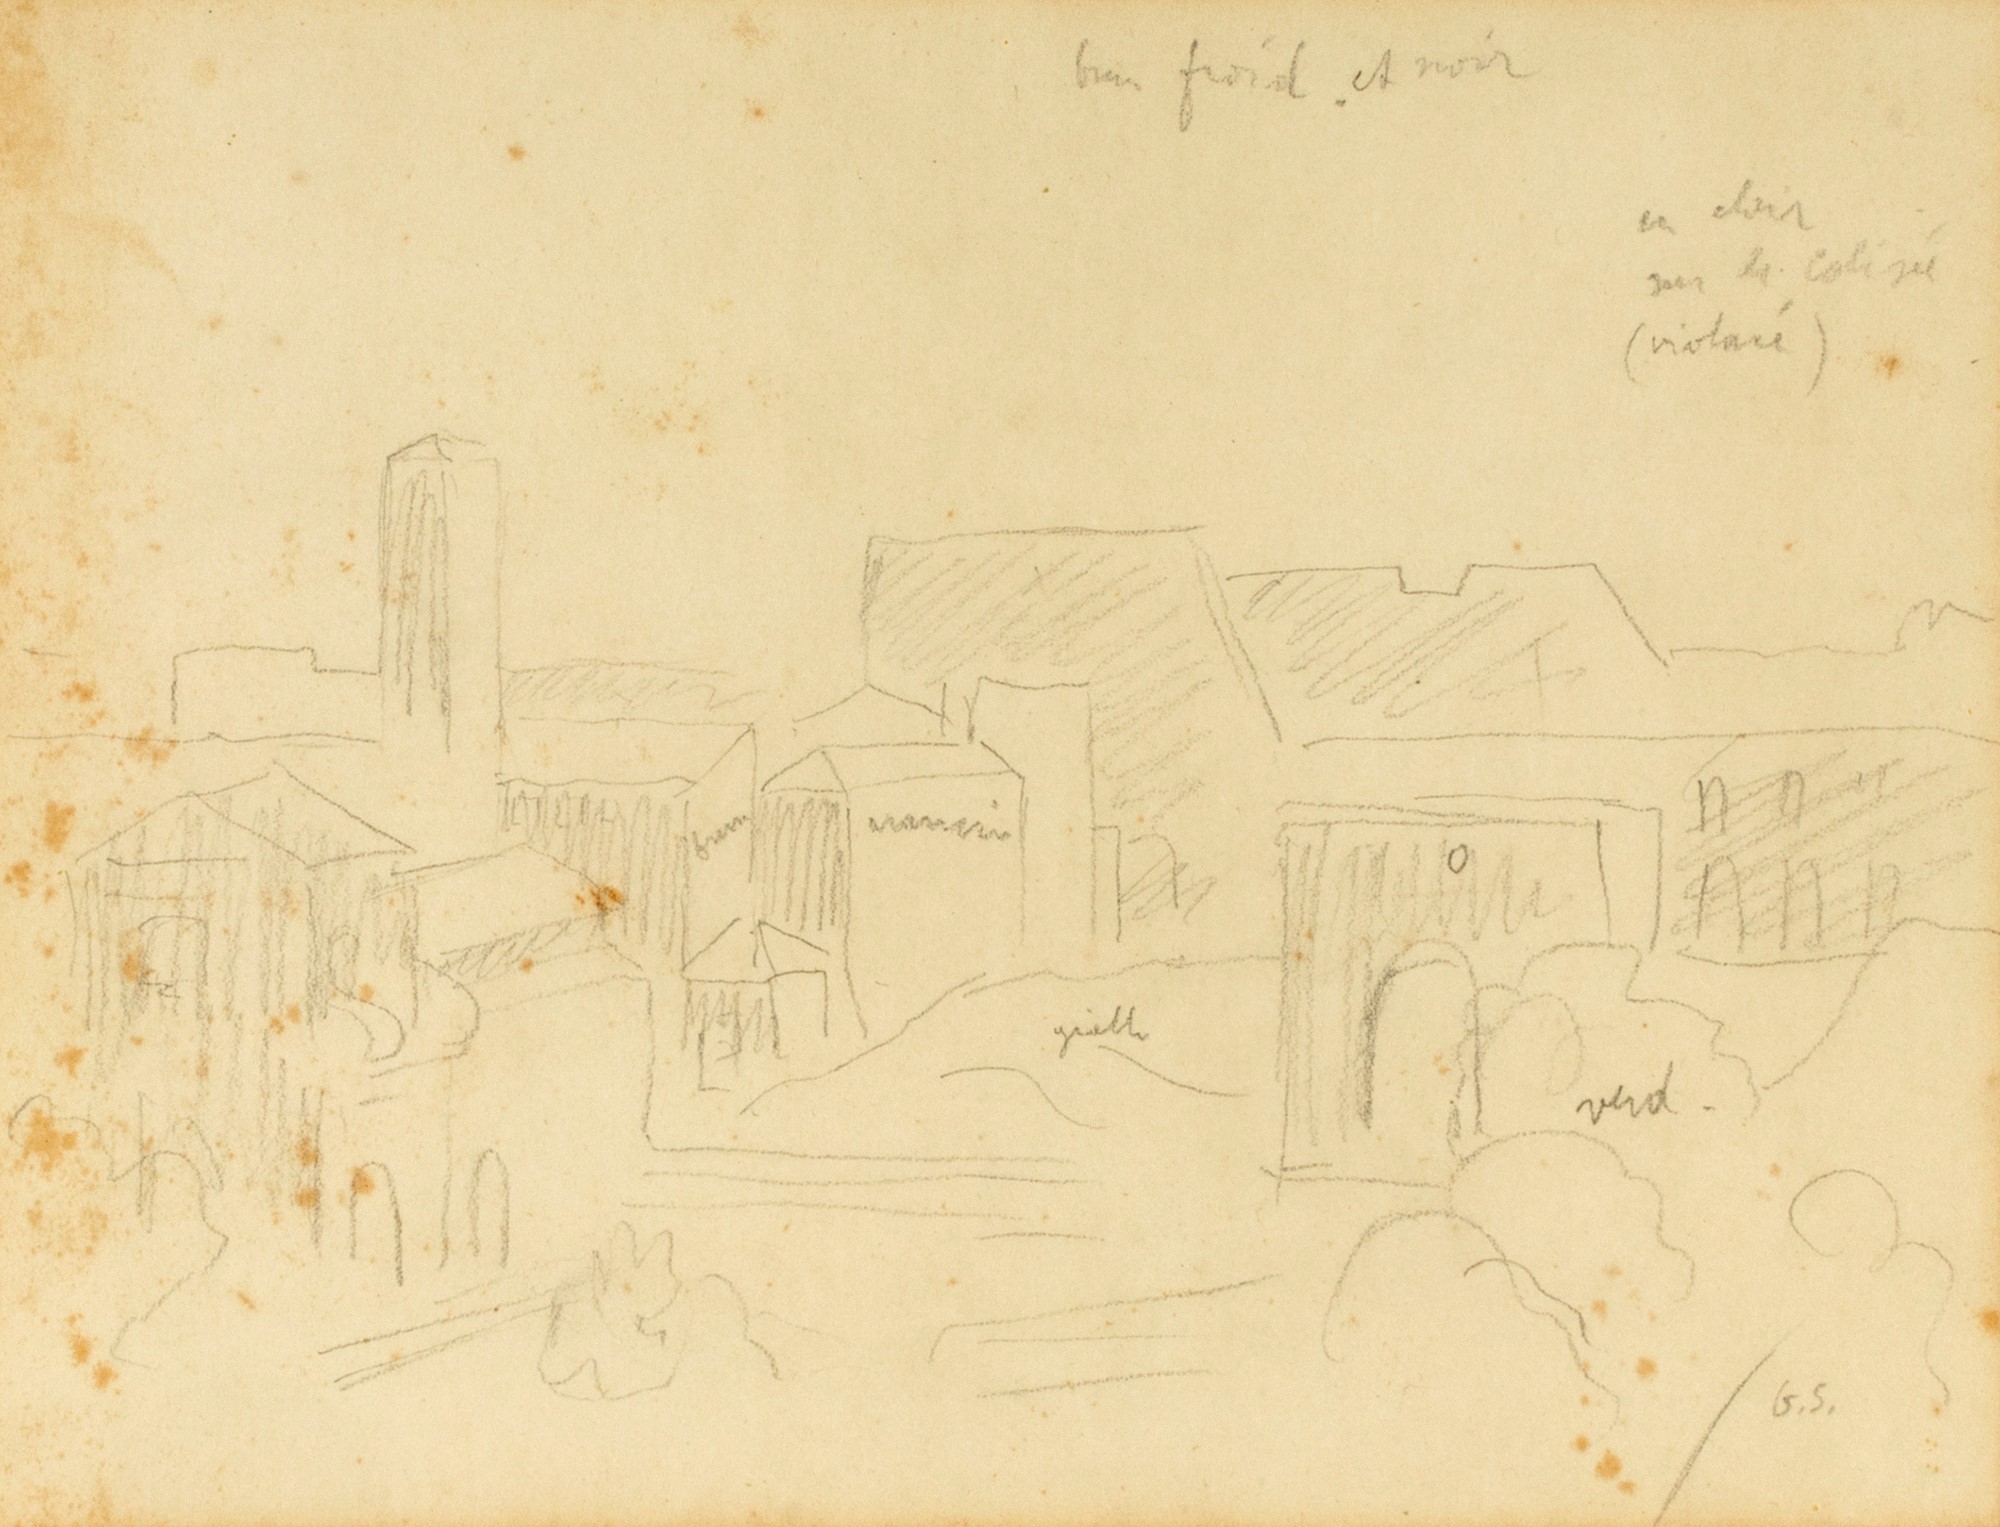 froid. et noir
en clair
sur le colisée
(violacé)
brun
verd -
G.S.